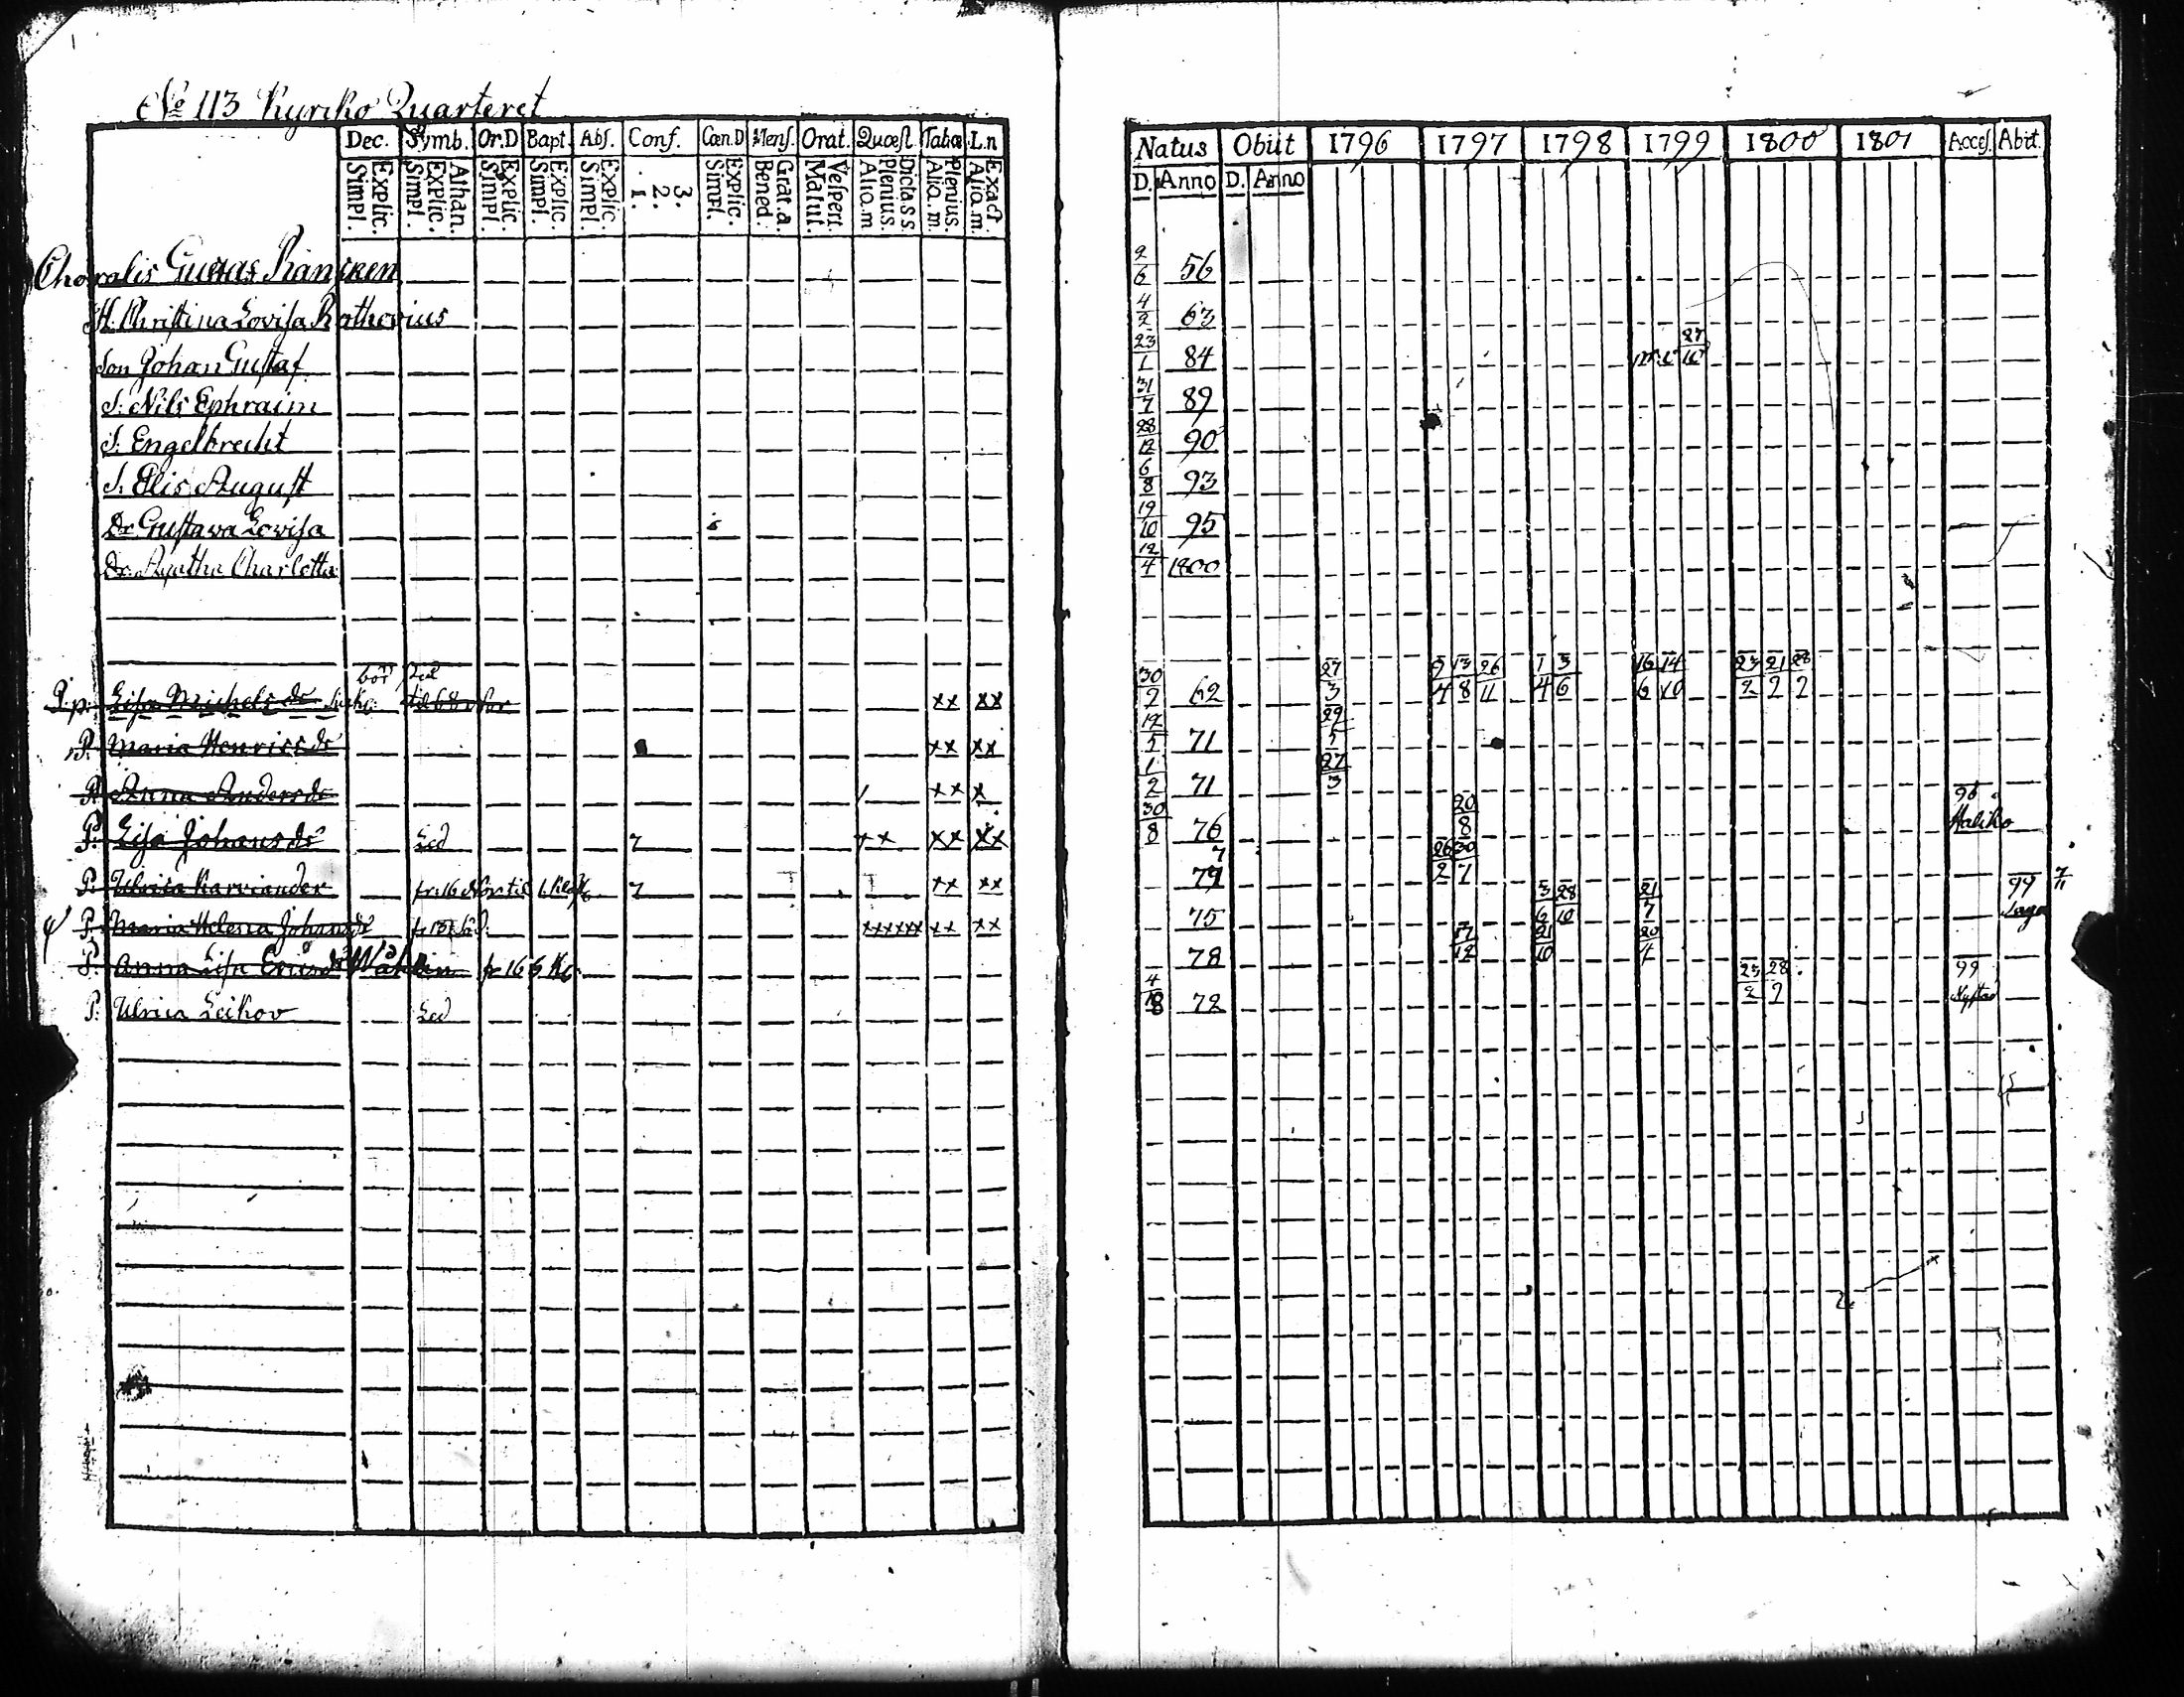 No 113 Kyrko Quarteret
Dec. Symb. Or.D Bapt. Abs. Conf. Cœn.D Mens. Orat. Quœst. Tabœ L.n
Explic. Simpl. Athan. Explic. Simpl. Explic. Simpl. Explic. Simpl. Explic. Simpl. 3. 2. 1. Explic. Simpl. Grat.a. Bened. Vespert. Matut. Dicta s s. Plenius. Alio.m Plenius. Alia.m. Exact. Alia.m.
Natus Obiit 1796 1797 1798 1799 1800 1801 Acces. Abit.
D. Anno D. Anno
Choralis Gustas Rancken 2/6 56
H. Christina Lovisa Rothovius 4/2 63
Son Johan Gustaf 23/1 84 27/10
S. Nils Ephraim 31/7 89
S. Engelbrecht 28/12 90
S. Elis August 6/8 93
Dr Gustava Lovisa 19/10 95
Dr Agatha Charlotta 12/4 1800
P.p. Lisa Michels dr xx xx 30/2 62 27/3 2/4 13/8 26/11 1/4 3/6 16/6 14/10 23/2 21/2 28/2
P. Maria Henrics dr xx xx 12/5 71 29/5
P. Anna Anders dr xx x 1/2 71 27/3
P. Lisa Johans dr Led 7 xx xx xx 30/8 76 20/8 96 Haliko
P. Ulrica Karviander 7 xx xx 79 26/2 30/7
P. Maria Helena Johans dr xxxxxx xx xx 75 3/6 28/10 21/7 99 7/11
P. Anna Lisa Erics dr Wåhlin 78 17/12 21/10 20/4
P. Ulrica Leikov Led 72 23/2 28/2 99